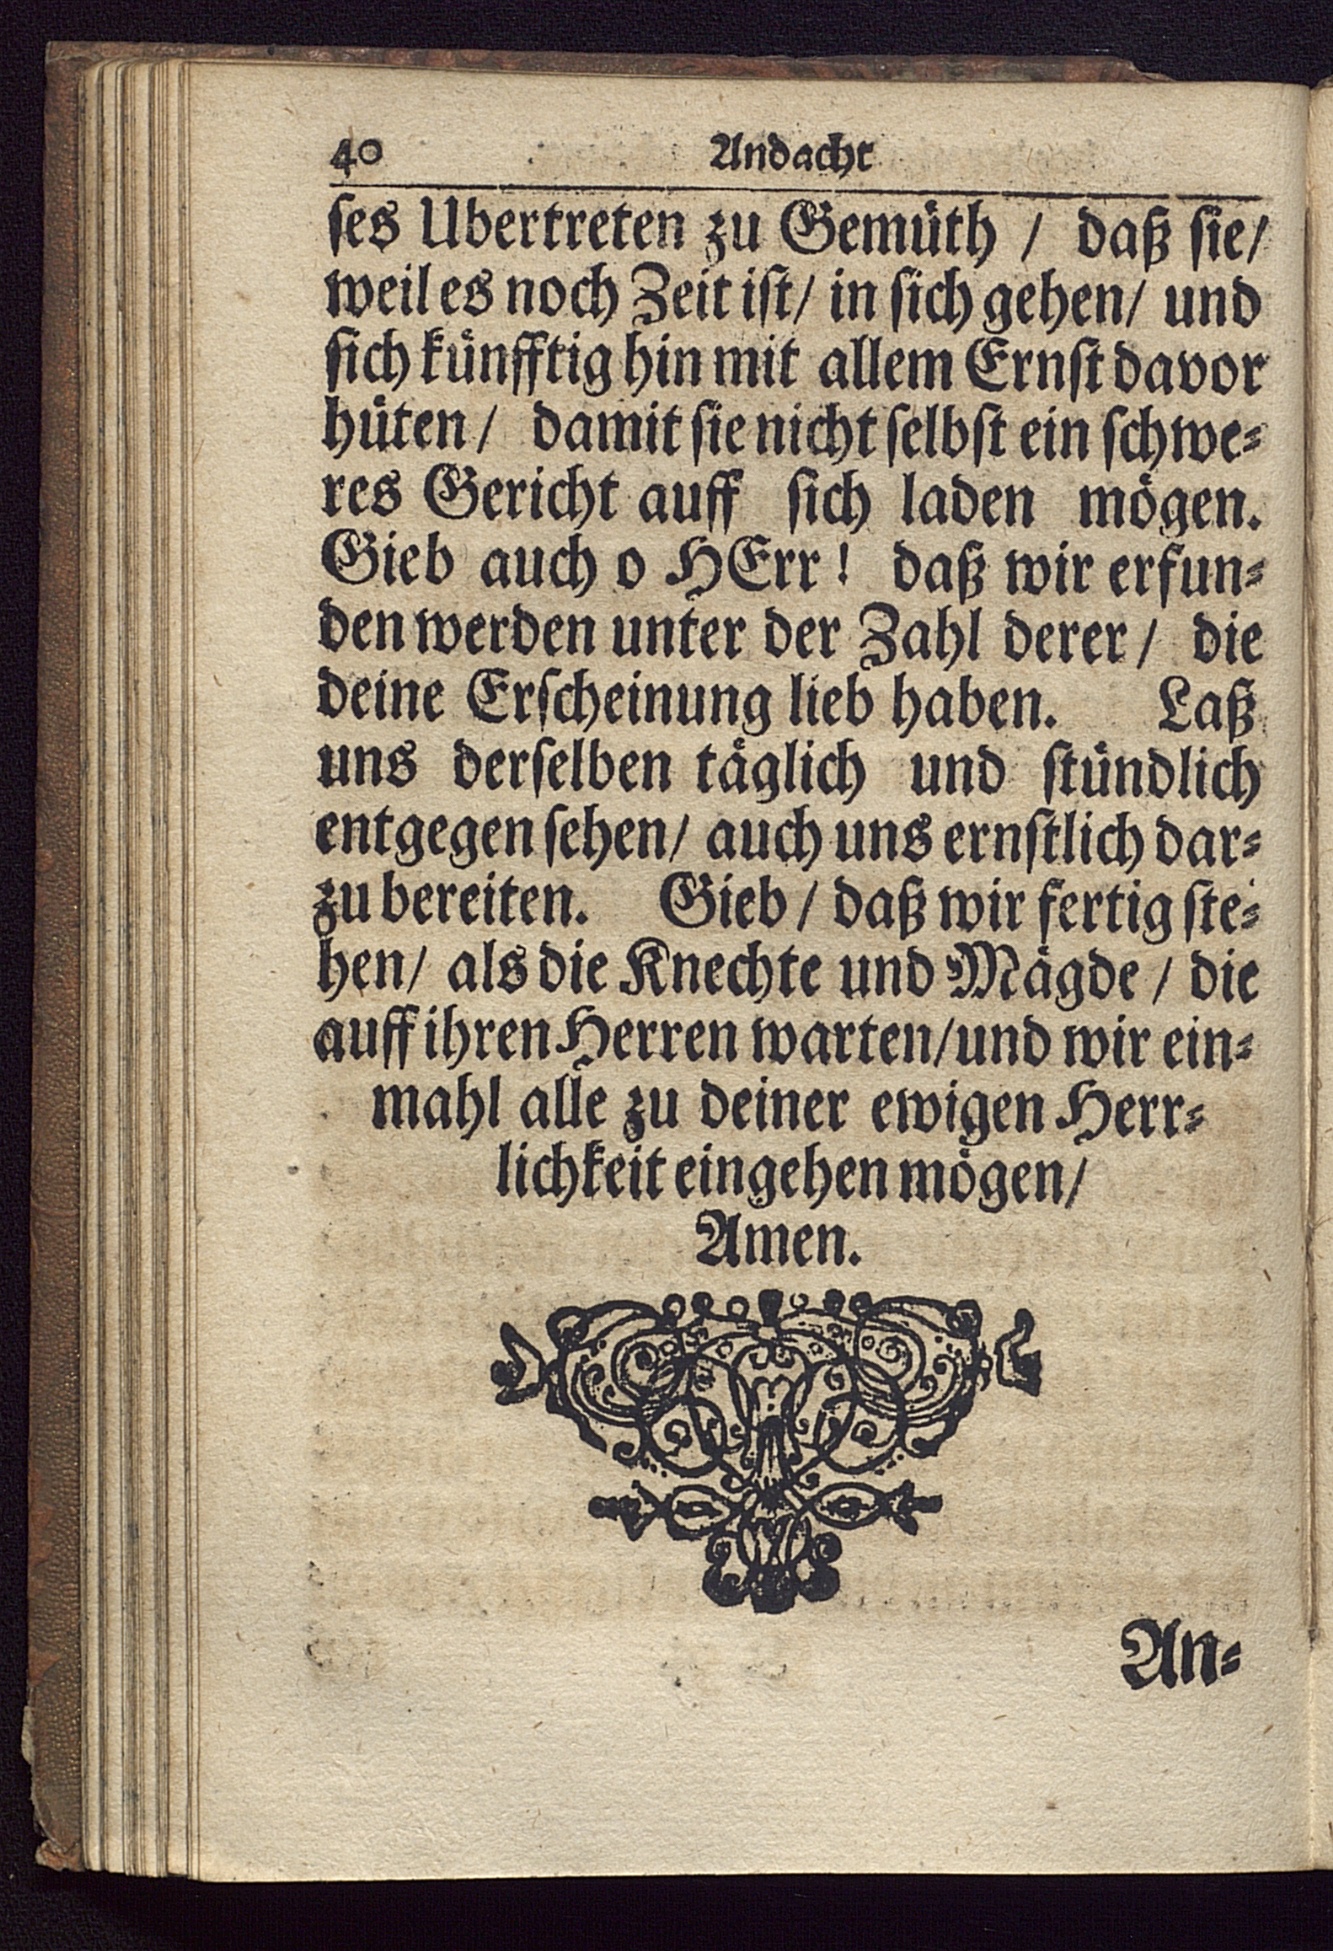 40 Andacht
ses Ubertreten zu Gemüth / daß sie/
weil es noch Zeit ist/ in sich gehen/ und
sich künfftig hin mit allem Ernst davor
hüten/ damit sie nicht selbst ein schwe-
res Gericht auff sich laden mögen.
Gieb auch o HErr! daß wir erfun-
den werden unter der Zahl derer/ die
deine Erscheinung lieb haben. Laß
uns derselben täglich und stündlich
entgegen sehen/ auch uns ernstlich dar-
zu bereiten. Gieb / daß wir fertig ste-
hen/ als die Knechte und Mägde / die
auff ihren Herren warten/und wir ein-
mahl alle zu deiner ewigen Herr-
lichkeit eingehen mögen/
Amen.
An-